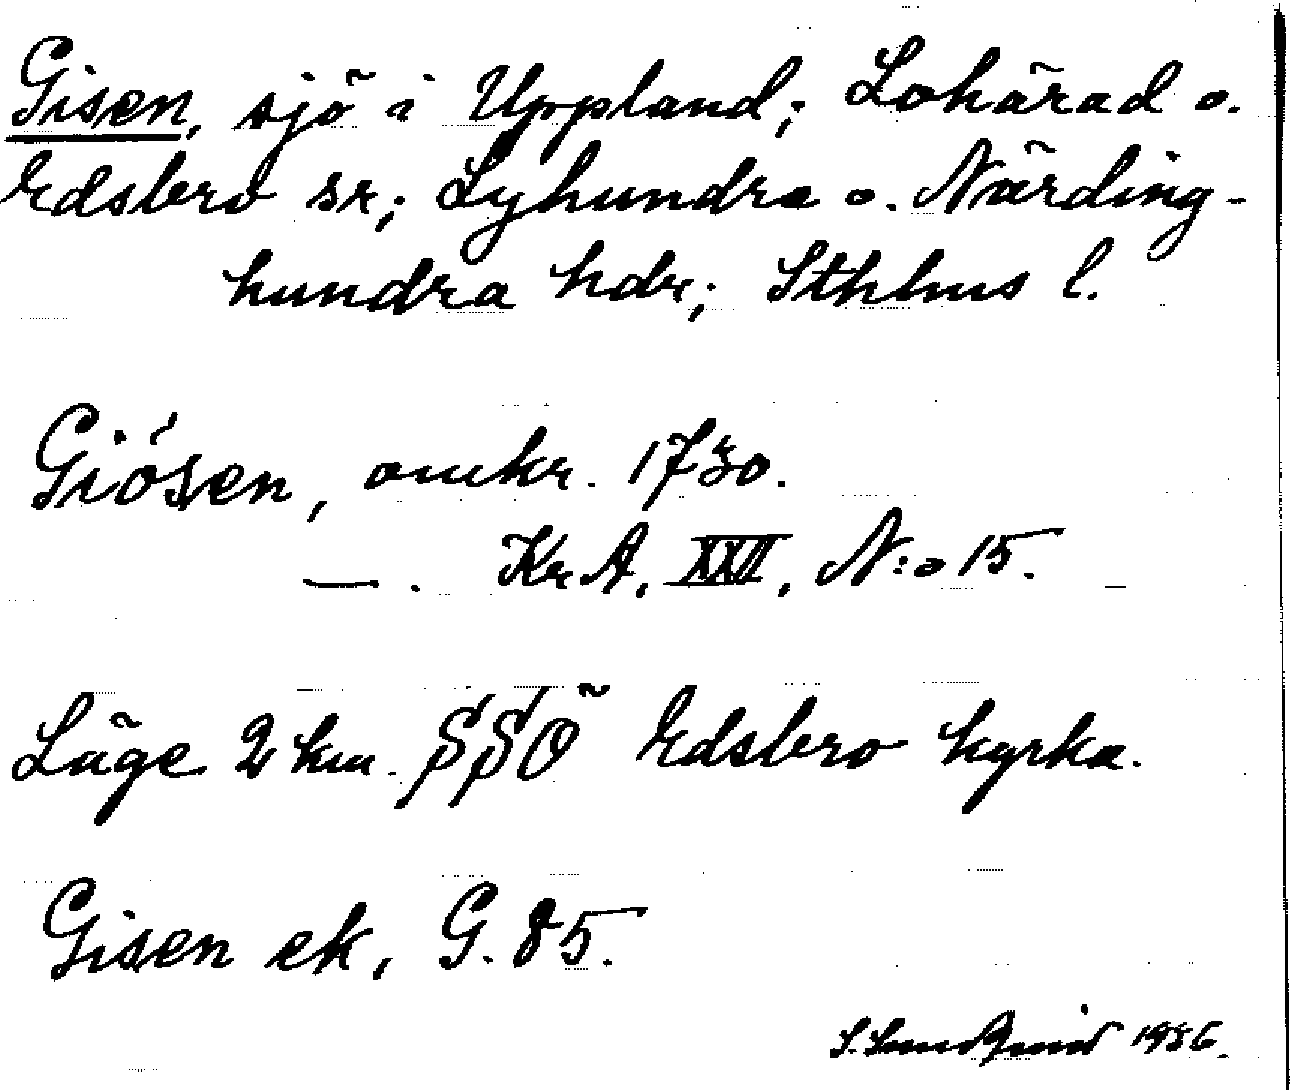 Gisen, sjö i Uppland; Lohärad o.
Edsbro sr; Lyhundra o. Närding-
hundra hdr; Sthlms l.
Giösen, omkr. 1730.
—. Kr A, XXII, N:o 15.
Läge 2 km. SSÖ Edsbro kyrka.
Gisen ek, G. 85.
S. Lundqvist 1936.